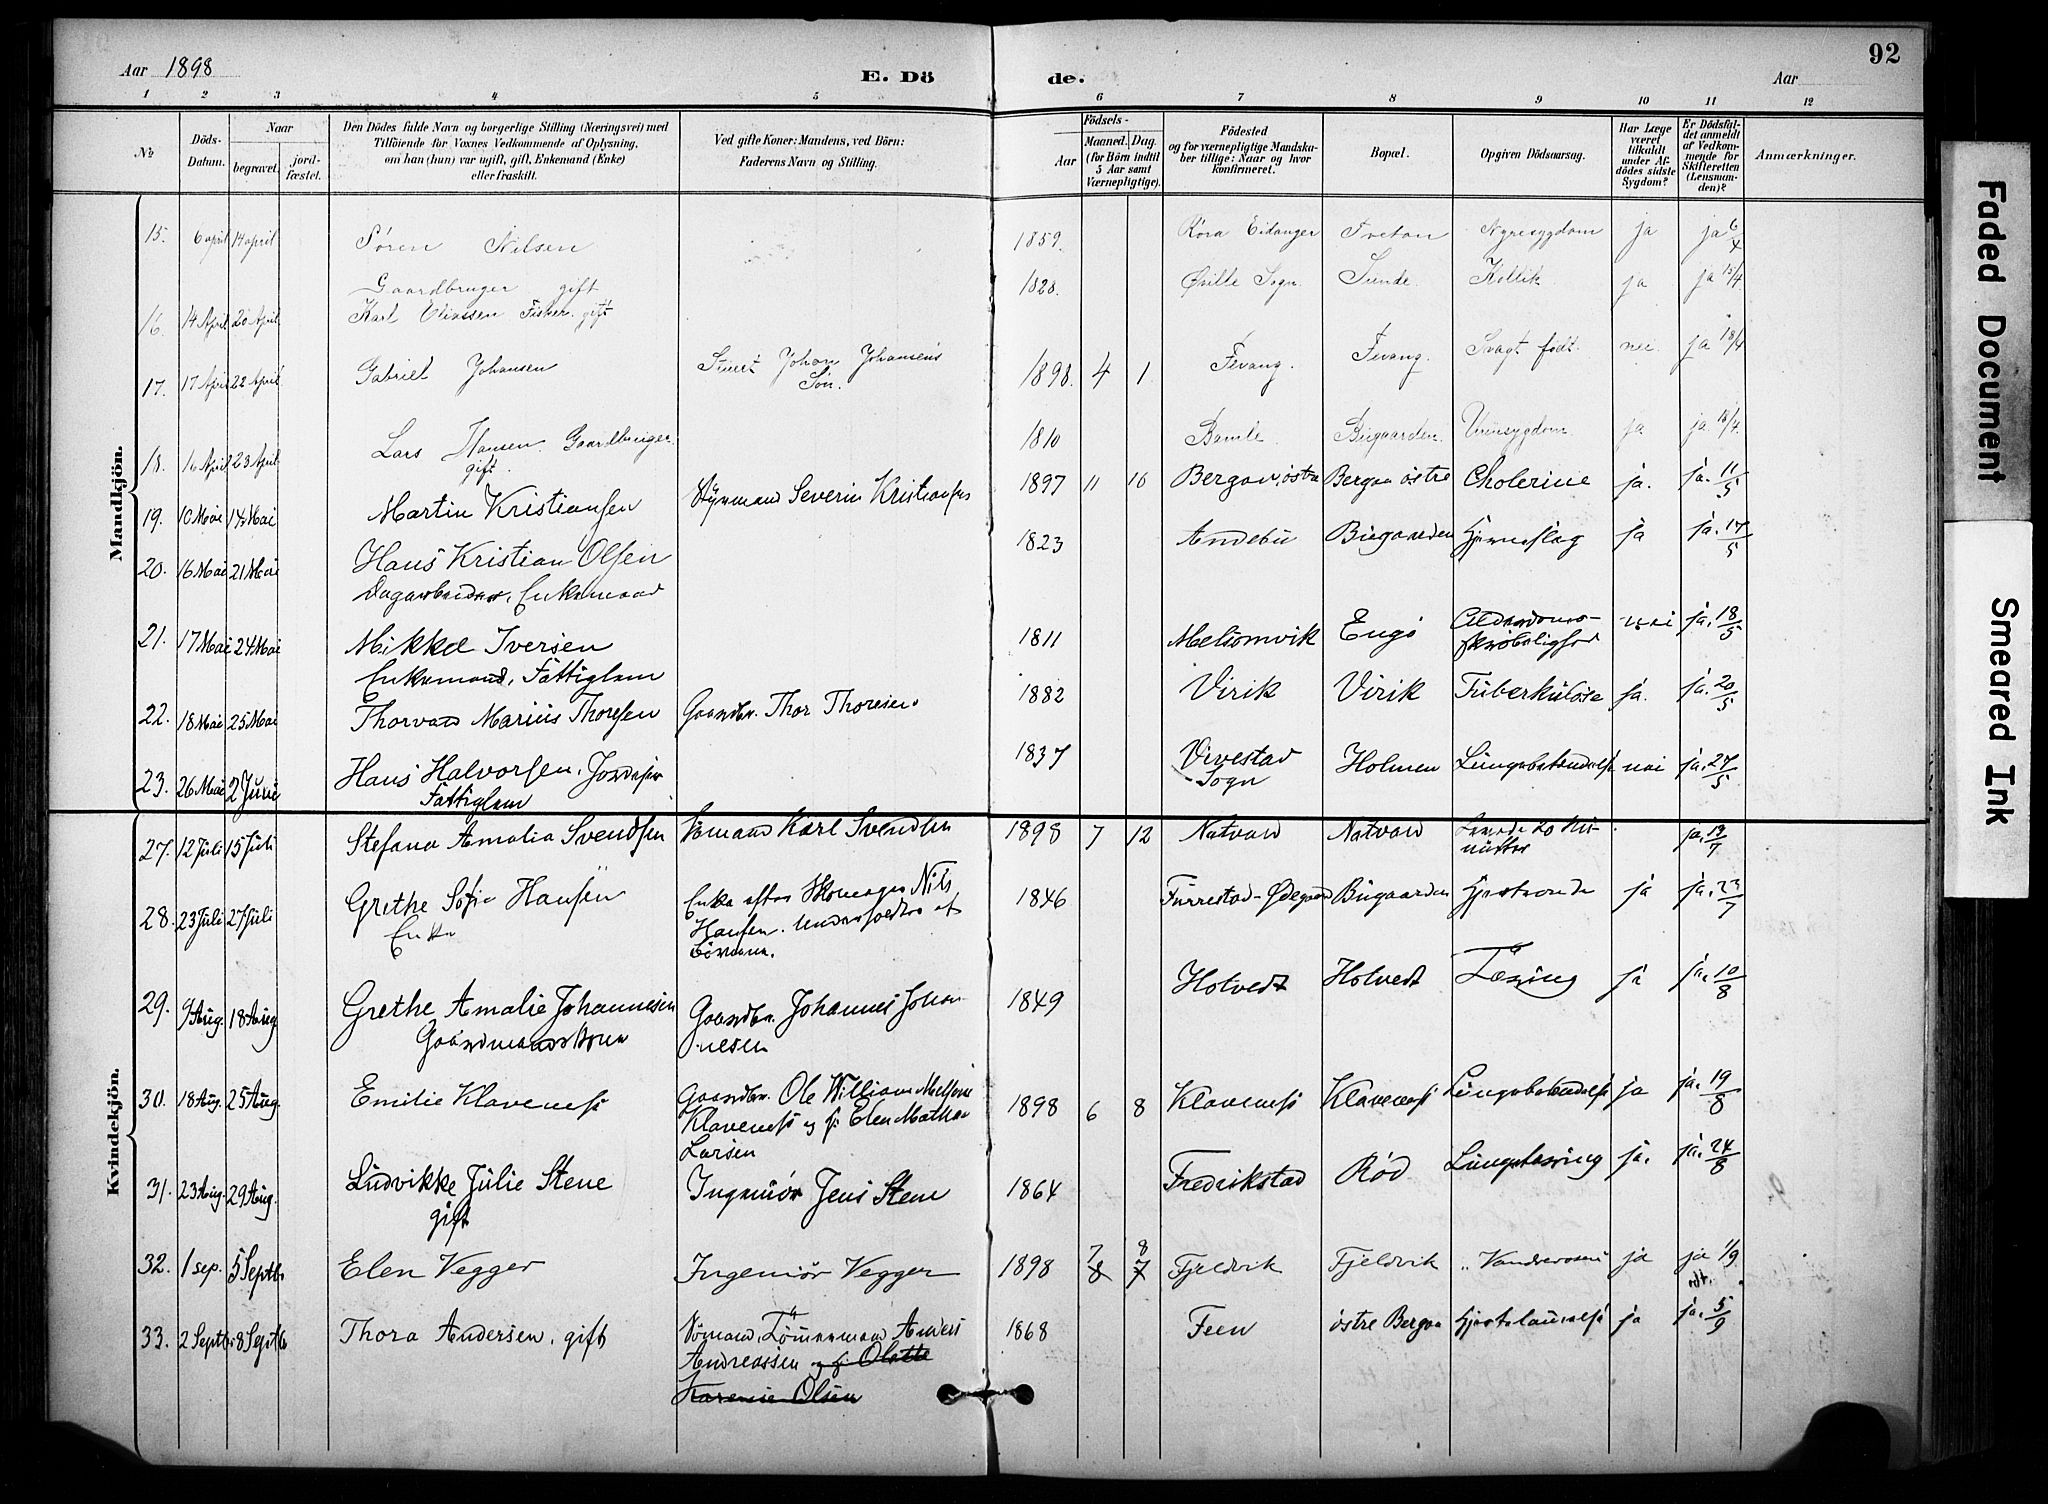 92
Aar 1898
E. Dö de.
Aar
1 2 3 4 5 6 7 8 9 10 11 12
No
Döds-Datum.
Naar
begravet.
jord-fæstet.
Den Dödes fulde Navn og borgerlige Stilling (Næringsvei) med
Tilföiende for Voxnes Vedkommende af Oplysning,
om han (hun) var ugift, gift, Enkemand (Enke)
eller fraskilt.
Ved gifte Koner: Mandens, ved Börn:
Faderens Navn og Stilling.
Födsels-
Aar
Maaned. Dag.
(for Börn indtil
5 Aar samt
Værnepligtige).
Födested
og for værnepligtige Mandska-
ber tillige: Naar og hvor
konfirmeret.
Bopæl.
Opgiven Dödsaarsag.
Har Læge
været
tilkaldt
under Af-
dödes sidste
Sygdom?
Er Dödsfal-
det anmeldt
af Vedkom-
mende for
Skifteretten
(Lensman-
den)?
Anmærkninger.
Mandkjön.
15. 6 april 14 april Sören Nilsen 1859. Eidanger Tveten Nyresygdom ja ja 6/4
Gaardbruger gift
16. 14 April 20 April Karl Eliassen Fisker. gift 1828. Sogn. Sunde. Kollik ja ja 15/4
17. 17 April 22 April Gabriel Johansen Johan Johansens 1898. 4 1 Fevang. Fevang. Svagt födt. nei. ja 18/4
Sön.
18. 16 April 23 April Lars Hansen Gaardbruger. 1810 Bamle Bugaarden. Urinsygdom ja ja 18/4
gift.
19. 10 Mai 14 Mai Martin Kristiansen Styrmand Severin Kristiansen 1897 11 10 Bergan östre Bergan östre Cholerine ja. ja. 11/5
20. 16 Mai 21 Mai Hans Kristian Olsen 1823 Andebu Bugaarden Hjerneslag ja ja. 17/5
Dagarbeider, Enkemand
21. 17 Mai 24 Mai Mikkel Iversen 1811 Melsomvik Engö Alderdoms- nei ja. 18/5
skröbelighed
Enkemand, Fattiglem
22. 18 Mai 25 Mai Thorvald Marius Thoresen Gaardbr. Thor Thoresen. 1882 Virik Virik Tuberkulose ja. ja. 20/5
23. 26 Mai 2 Juni Hans Halvorsen, 1837 Vivestad Holmen Lungebetændelse nei ja. 27/5
Sogn
Fattiglem
Kvindekjön.
27. 12 Juli 15 Juli Stefana Amalia Svendsen Sömand Karl Svendsen 1898 7 12 Natvad Natvad Levede 20 Mi- ja. 13/7
nutter
28. 23 Juli 27 Juli Grethe Sofie Hansen Enke efter Skomager Nils 1846 Furrestad-Ödegaard Bugaarden Hjerteonde ja ja. 23/7
Enke Hansen. Understöttes af
Börnene.
29. 9 Aug. 18 Aug Grethe Amalie Johannesen Gaardbr. Johannes Johan- 1849 Holvedt Holvedt Tæring ja ja. 10/8
Gaardmandskone nesen
30. 18 Aug. 25 Aug. Emilie Klaveness Gaardbr. Ole William 1898 6 8 Klaveness Klaveness Lungebetændelse ja ja. 19/8
Klaveness og h: Elen Mathea
Larsen
31. 23 Aug. 29 Aug. Ludvikke Julie Stene Ingeniör Jens Stene 1864 Fredrikstad Röd Lungetæring ja. ja. 24/8
gift
32. 1 sep. 5 Septb Elen Vegger Ingeniör Vegger 1898 7 8 Fjeldvik Fjeldvik ja ja 1/9
8 7
33. 2 Septb. 8 Septb Thora Andersen, gift Sömand, Tömmermand Anders 1868 Feen östre Bergan Hjertelammelse ja ja. 5/9
Andreassen og h: Olette
Karenie Olsen
Faded Document
Smeared Ink